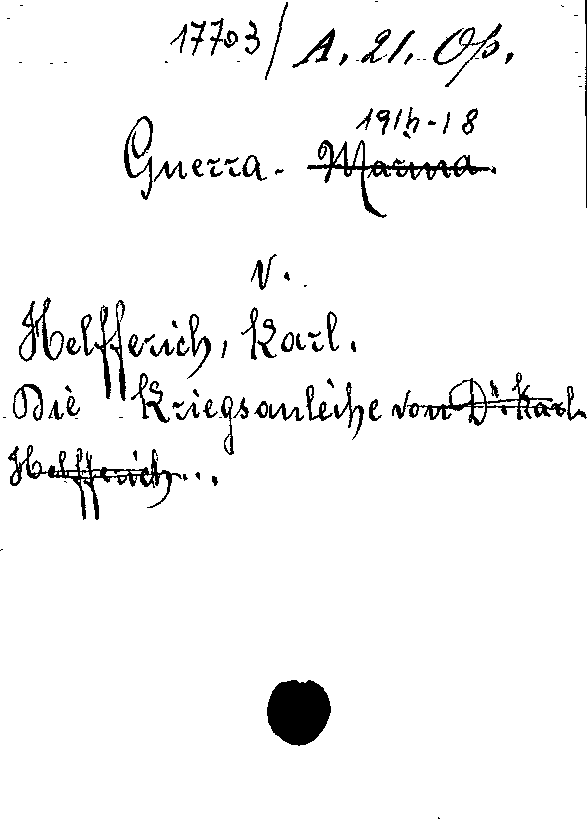 17703/ A. 21. Op.
1914-18
Guerra. Marina.
V.
Helfferich, Karl.
Die Kriegsanleihe von Dr. Karl
Helfferich...